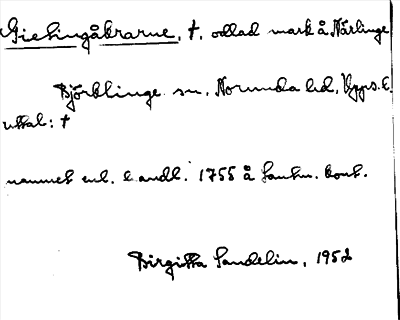 Giesingåkrarne, †, odlad mark å Närlinge
Björklinge sn, Norunda hd, Upps. l.
uttal: †
namnet enl. lantl. 1755 å samtn. kont.
Birgitta Sandelin, 1952